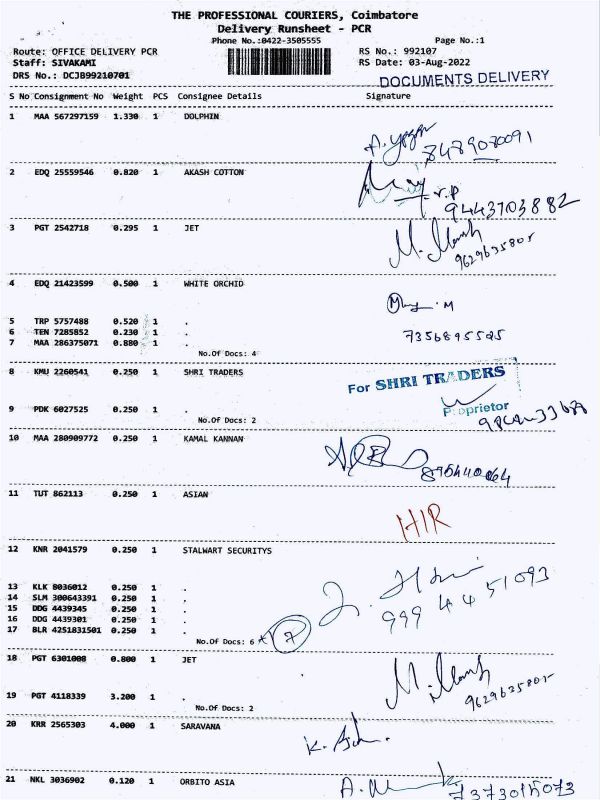 THE PROFESSIONAL COURIERS, Coimbatore
Delivery Runsheet - PCR
Phone No.:0422-3505555
Page No.:1
Route: OFFICE DELIVERY PCR
RS No.: 992107
Staff: SIVAKAMI
RS Date: 03-Aug-2022
DRS No.: DCJB99210701
DOCUMENTS DELIVERY
S No Consignment No Weight PCS Consignee Details Signature
1 MAA 567297159 1.330 1 DOLPHIN
8489070091
2 EDQ 25559546 0.820 1 AKASH COTTON
r.p
9443703882
3 PGT 2542718 0.295 1 JET
9629635805
4 EDQ 21423599 0.500 1 WHITE ORCHID
5 TRP 5757488 0.520 1 .
6 TEN 7285852 0.230 1 .
7 MAA 286375071 0.880 1 .
No.Of Docs: 4
8 KMU 2260541 0.250 1 SHRI TRADERS
For SHRI TRADERS
Proprietor
9 PDK 6027525 0.250 1 .
No.Of Docs: 2
10 MAA 280909772 0.250 1 KAMAL KANNAN
11 TUT 862113 0.250 1 ASIAN
HIR
12 KNR 2041579 0.250 1 STALWART SECURITYS
13 KLK 8036012 0.250 1 .
14 SLM 300643391 0.250 1 .
15 DDG 4439345 0.250 1 .
16 DDG 4439301 0.250 1 .
17 BLR 4251831501 0.250 1 .
999 4451093
No.Of Docs: 6
7
18 PGT 6301008 0.800 1 JET
9629635805
19 PGT 4118339 3.200 1 .
No.Of Docs: 2
20 KRR 2565303 4.000 1 SARAVANA
21 NKL 3036902 0.120 1 ORBITO ASIA
7373015073